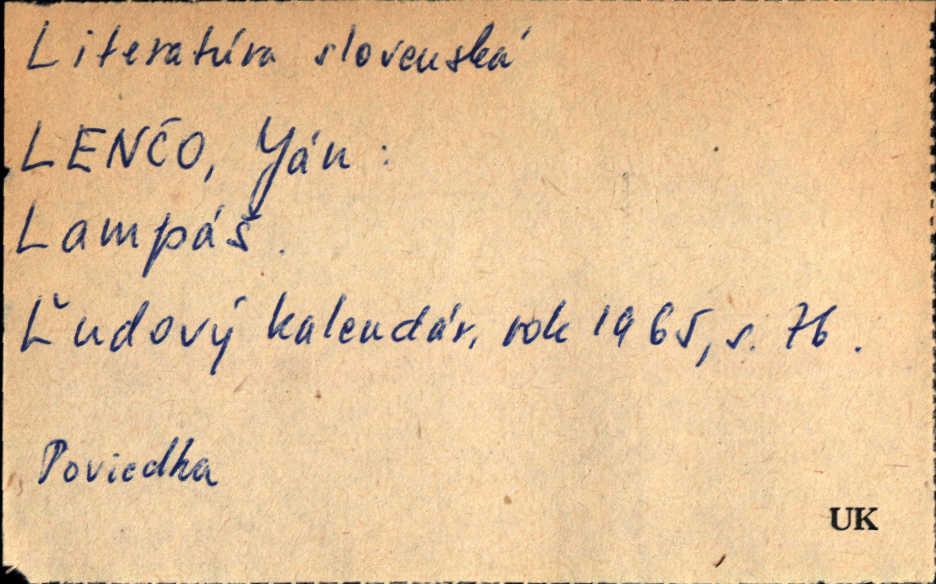 Literatúra slovenská
LENČO, Ján:
Lampáš.
Ľudový kalendár, rok 1965, s. 76.
Poviedka
UK